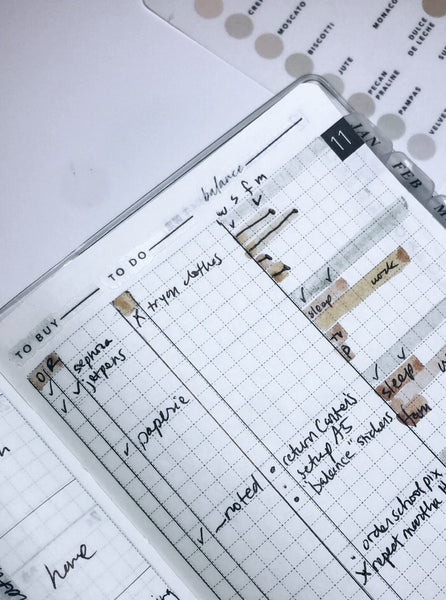 MOSCATO
BISCOTTI
JUTE
PECAN
PRALINE
PAMPAS
MONACO
DULCE
DE LECHE
11
JAN
FEB
balance
w s f m
TO DO
TO BUY
try on clothes
sephora
jetpens
paperie
noted
sleep
work
tv
sleep
return Conters
setup A5
"balance" stickers
order school pix
repeat months
home